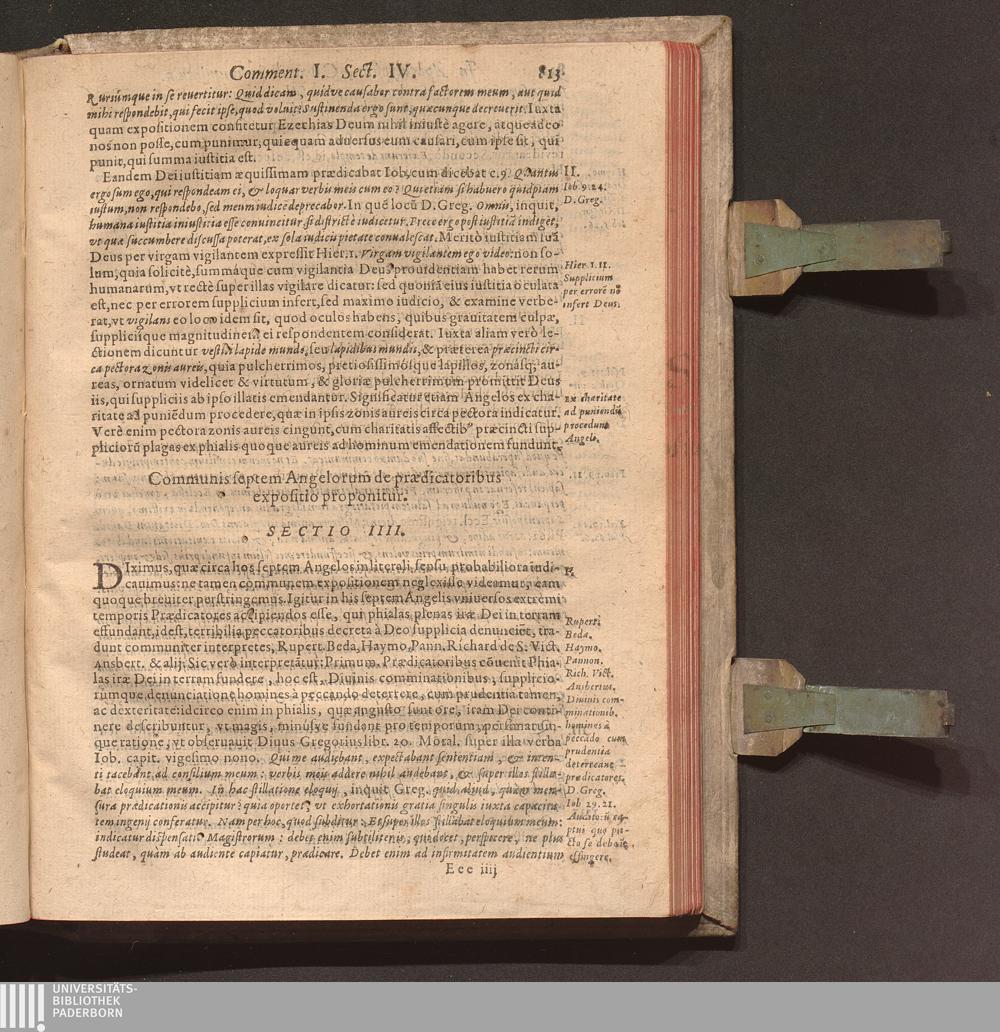 Comment. I. Sect. IV. 813
Rursúmque in se revertitur: Quid dicam, quidve causabor contra factorem meum, aut quid
mihi respondebit, qui fecit ipse, quod voluit? Sustinenda ergo sunt, quæcunque decreverit. Iuxta
quam expositionem confitetur Ezechias Deum nihil iniustè agere, atque adeo
nos non posse, cum punimur, quicquam adversus eum causari, cum ipse sit, qui
punit, qui summa iustitia est.
Eandem Dei iustitiam æquissimam prædicabat Iob, cum dicebat c. 9. Quantus
ergo sum ego, qui respondeam ei, & loquar verbis meis cum eo? Qui etiam si habuero quidpiam
iustum, non respondebo, sed meum iudicē deprecabor. In quē locū D. Greg. Omnis, inquit,
humana iustitia iniustitia esse convincitur, si districtè iudicetur. Prece ergo post iustitiā indiget,
vt quæ succumbere discussa poterat, ex sola iudicis pietate convalescat. Meritò iustitiam suā
Deus per virgam vigilantem expressit Hier. 1. Virgam vigilantem ego video: non so-
lum, quia solicitè, summáque cum vigilantia Deus providentiam habet rerum
humanarum, vt rectè super illas vigilare dicatur: sed quoniā eius iustitia oculata
est, nec per errorem supplicium infert, sed maximo iudicio, & examine verbe-
rat, vt vigilans eo loco idem sit, quod oculos habens, quibus gravitatem culpæ,
suppliciíque magnitudinem ei respondentem considerat. Iuxta aliam verò le-
ctionem dicuntur vestiti lapide mundo, seu lapidibus mundis, & præterea præcincti cir-
ca pectora zonis aureis, quia pulcherrimos, pretiosissimósque lapillos, zonásq; au-
reas, ornatum videlicet & virtutum, & gloriæ pulcherrimum promittit Deus
iis, qui suppliciis ab ipso illatis emendantur. Significatur etiam Angelos ex cha-
ritate ad puniēdum procedere, quæ in ipsis zonis aureis circa pectora indicatur.
Verè enim pectora zonis aureis cingunt, cum charitatis affectib9 præcincti sup-
pliciorū plagas ex phialis quoque aureis ad hominum emendationem fundunt.
II.
Iob 9. 24.
D. Greg.
Hier. 1. 11.
Supplicium
per errorē nō
infert Deus.
Ex charitate
ad puniendū
procedunt
Angeli.
Communis septem Angelorum de prædicatoribus
expositio proponitur.
SECTIO IIII.
DIximus, quæ circa hos septem Angelos in literali sensu probabiliora iudi-
cavimus: ne tamen communem expositionem neglexisse videamur, eam
quoque breviter perstringemus. Igitur in his septem Angelis vniversos extremi
temporis Prædicatores accipiendos esse, qui phialas plenas iræ Dei in terram
effundant, id est, terribilia peccatoribus decreta à Deo supplicia denunciēt, tra-
dunt communiter interpretes, Rupert. Beda, Haymo, Pann. Richard de S. Vict.
Ansbert. & alij. Sic verò interpretātur: Primum. Prædicatoribus cōvenit Phia-
las iræ Dei in terram fundere, hoc est, Divinis comminationibus, supplicio-
rúmque denunciatione homines à peccando deterrere, cum prudentia tamen,
ac dexteritate: idcirco enim in phialis, quæ angusto sunt ore, iram Dei conti-
nere describuntur, vt magis, minúsve fundant pro temporum, personarúm-
que ratione, vt observavit Divus Gregorius libr. 20. Moral. super illa verba
Iob. capit. vigesimo nono. Qui me audiebant, expectabant sententiam, & inten-
ti tacebant ad consilium meum: verbis meis addere nihil audebant, & super illos stilla-
bat eloquium meum. In hac stillatione eloquij, inquit Greg. quid aliud, quàm men-
sura prædicationis accipitur? quia oportet, vt exhortationis gratia singulis iuxta capacita-
tem ingenij conferatur. Nam per hoc, quod subditur: Et super illos stillabat eloquium meum:
indicatur dispensatio Magistrorum: debet enim subtiliter is, qui docet, perspicere, ne plus
studeat, quàm ab audiente capiatur, prædicare. Debet enim ad infirmitatem audientium
Eee iiij
I.
Rupert.
Beda.
Haymo.
Pannon.
Rich. Vict.
Ansbertus.
Divinis com-
minationib.
homines à
peccādo cum
prudentia
deterreant
prædicatores.
D. Greg.
Iob 29. 21.
UNIVERSITÄTS-
BIBLIOTHEK
PADERBORN